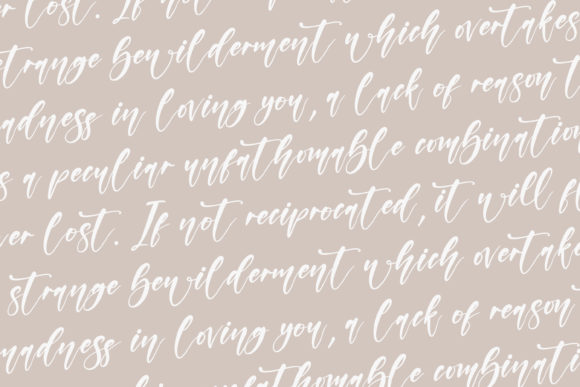 er lost. If not
strange bewilderment which overtakes
madness in loving you, a lack of reason t
s a peculiar unfathomable combination
ver lost. If not reciprocated, it will fl
strange bewilderment which overtake
madness in loving you, a lack of reason
unfathomable combinatio